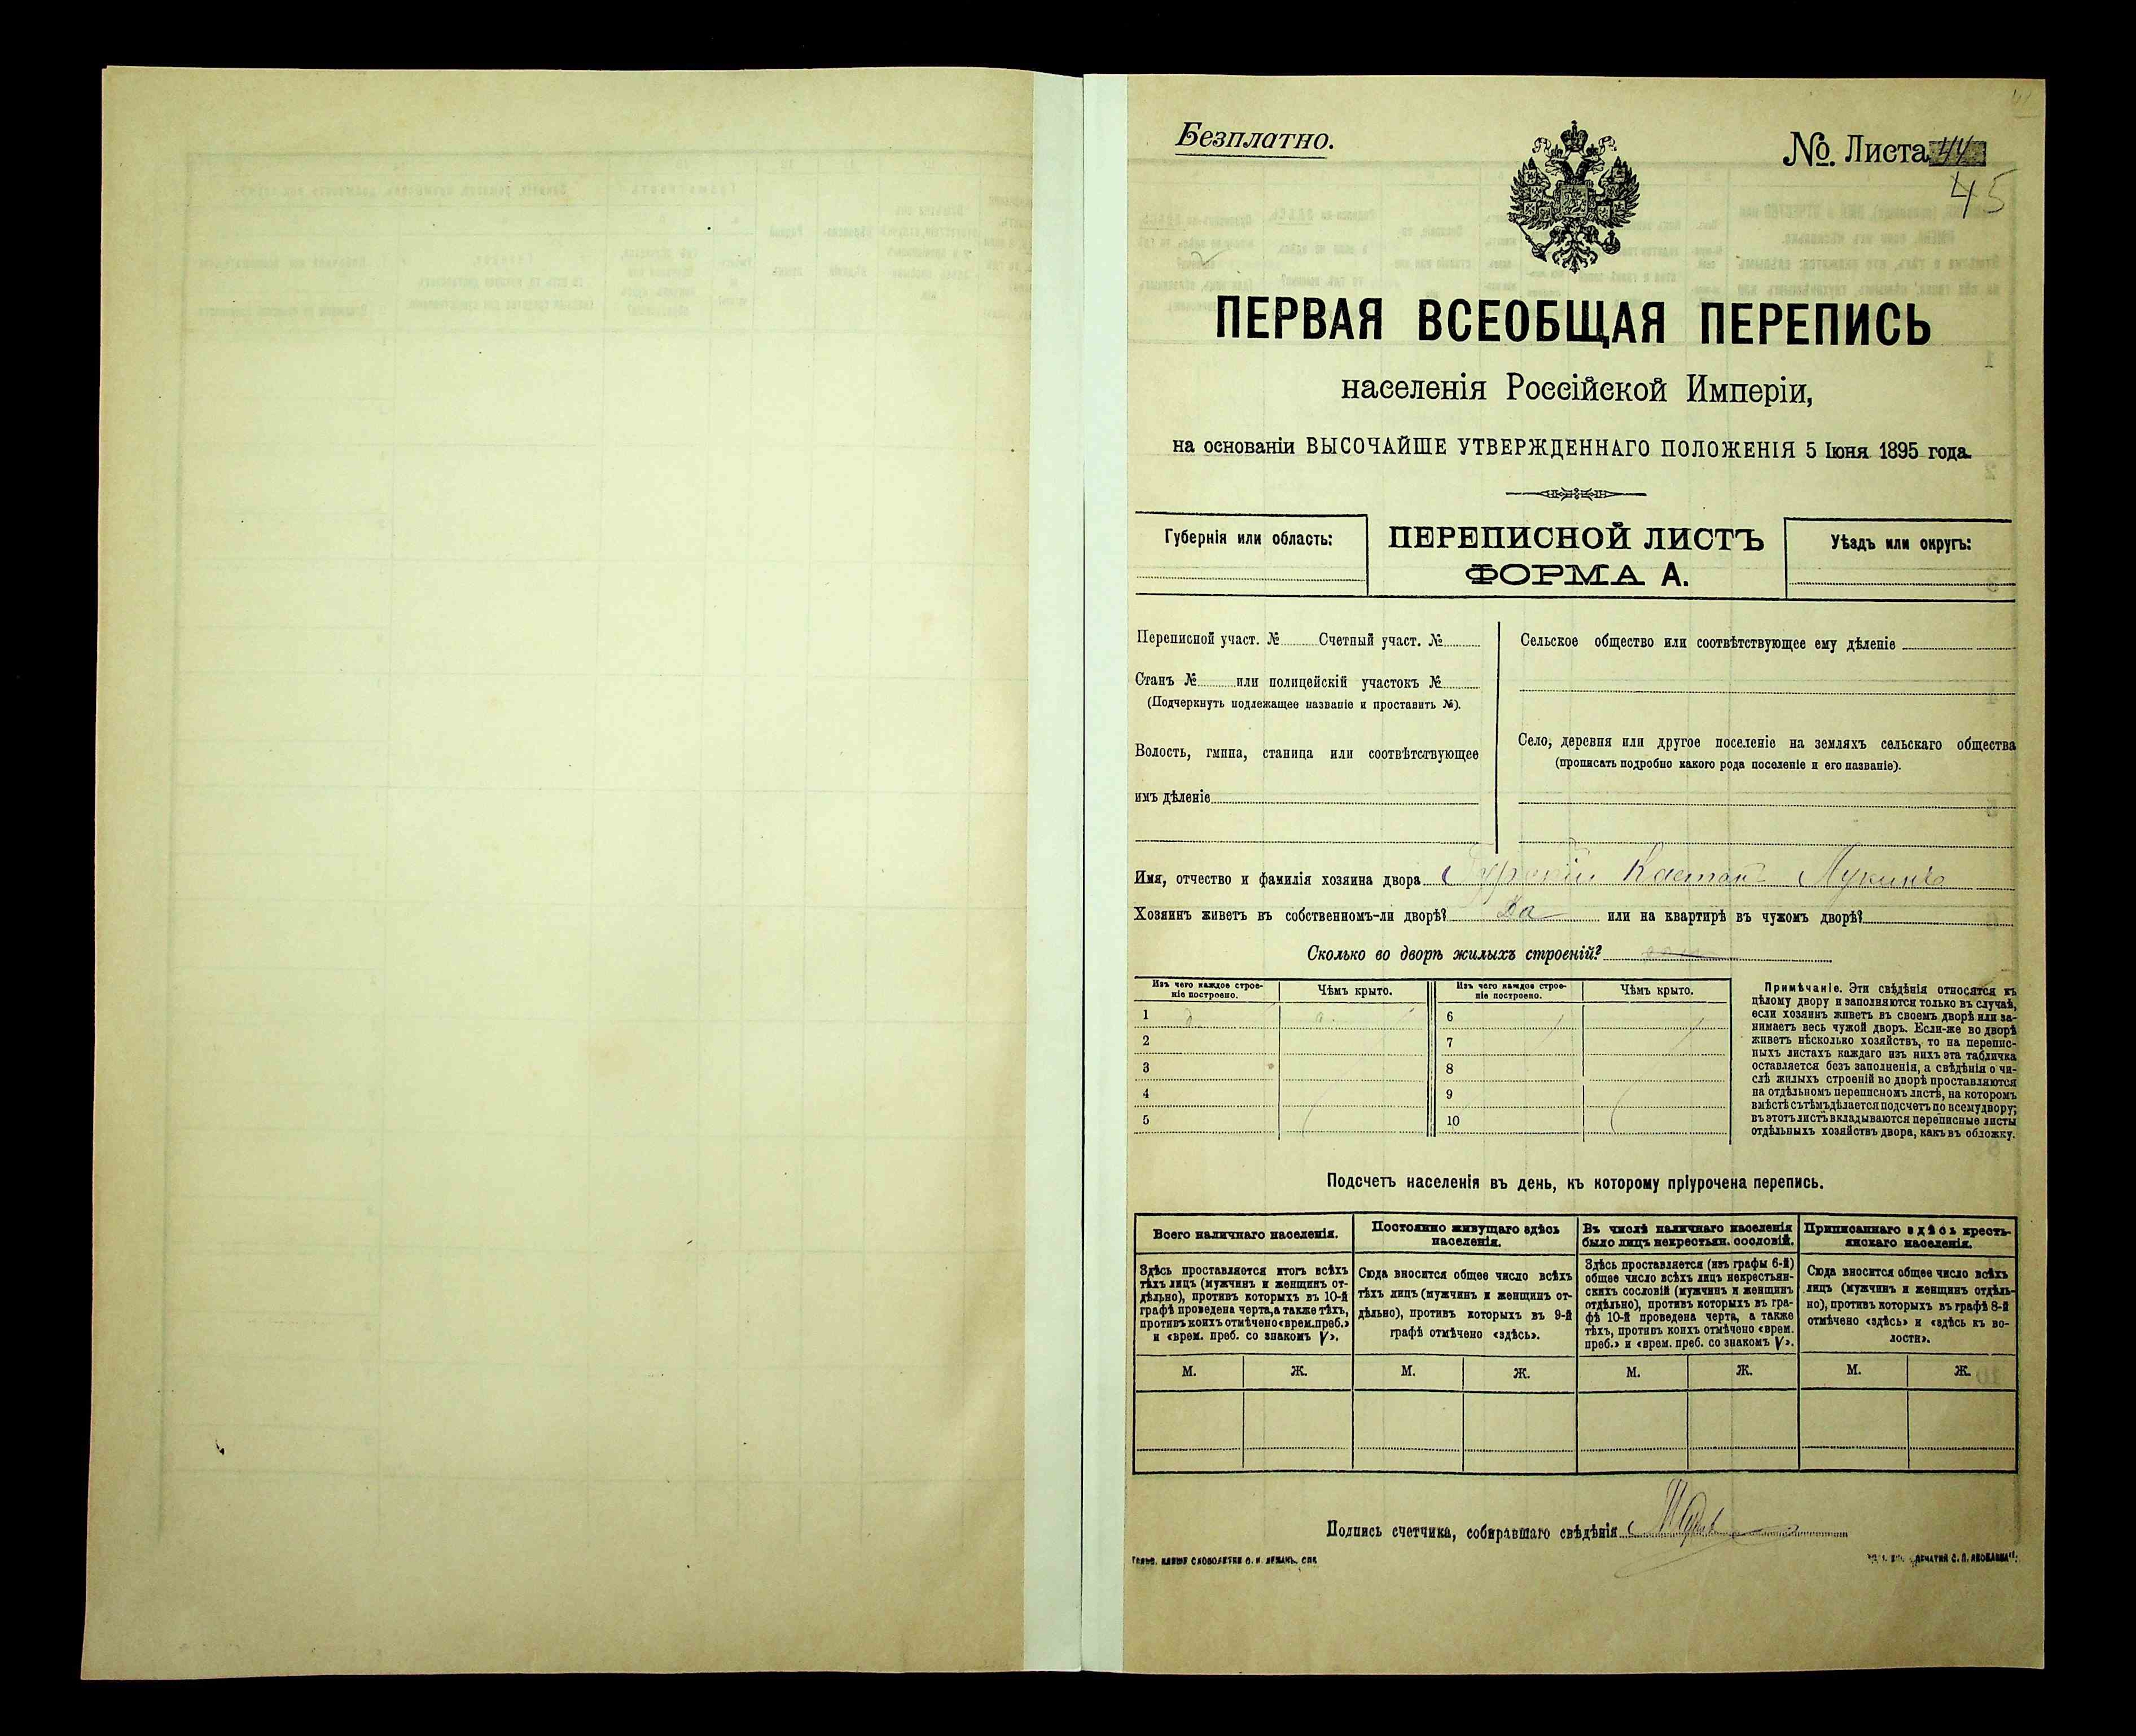 Безплатно.
№. Листа 44
45
ПЕРВАЯ ВСЕОБЩАЯ ПЕРЕПИСЬ
населенія Россійской Имперіи,
на основаніи ВЫСОЧАЙШЕ УТВЕРЖДЕННАГО ПОЛОЖЕНІЯ 5 Іюня 1895 года.
Губернія или область:
ПЕРЕПИСНОЙ ЛИСТЪ
ФОРМА А.
Уѣздъ или округъ:
Переписной участ. № Счетный участ. №
Станъ № или полицейскій участокъ №
(Подчеркнуть подлежащее названіе и проставить №).
Волость, гмина, станица или соотвѣтствующее
имъ дѣленіе
Сельское общество или соотвѣтствующее ему дѣленіе
Село, деревня или другое поселеніе на земляхъ сельскаго общества
(прописать подробно какого рода поселеніе и его названіе).
Имя, отчество и фамилія хозяина двора
Хозяинъ живетъ въ собственномъ-ли дворѣ? Да или на квартирѣ въ чужомъ дворѣ?
Сколько во дворѣ жилыхъ строеній?
Изъ чего каждое строе-
ніе построено.
Чѣмъ крыто.
Изъ чего каждое строе-
ніе построено.
Чѣмъ крыто.
1
2
3
4
5
6
7
8
9
10
Примѣчаніе. Эти свѣдѣнія относятся къ
цѣлому двору и заполняются только въ случаѣ,
если хозяинъ живетъ въ своемъ дворѣ или за-
нимаетъ весь чужой дворъ. Если-же во дворѣ
живетъ нѣсколько хозяйствъ, то на перепис-
ныхъ листахъ каждаго изъ нихъ эта табличка
оставляется безъ заполненія, а свѣдѣнія о чи-
слѣ жилыхъ строеній во дворѣ проставляются
на отдѣльномъ переписномъ листѣ, на которомъ
вмѣстѣ съ тѣмъ дѣлается подсчетъ по всему двору;
въ этотъ листъ вкладываются переписные листы
отдѣльныхъ хозяйствъ двора, какъ въ обложку.
Подсчетъ населенія въ день, къ которому пріурочена перепись.
Всего наличнаго населенія.
Здѣсь проставляется итогъ всѣхъ
тѣхъ лицъ (мужчинъ и женщинъ от-
дѣльно), противъ которыхъ въ 10-й
графѣ проведена черта, а также тѣхъ,
противъ коихъ отмѣчено «врем. преб.»
и «врем. преб. со знакомъ V».
М. Ж.
Постоянно живущаго здѣсь
населенія.
Сюда вносится общее число всѣхъ
тѣхъ лицъ (мужчинъ и женщинъ от-
дѣльно), противъ которыхъ въ 9-й
графѣ отмѣчено «здѣсь».
М. Ж.
Въ числѣ наличнаго населенія
было лицъ некрестьян. сословій.
Здѣсь проставляется (изъ графы 6-й)
общее число всѣхъ лицъ некрестьян-
скихъ сословій (мужчинъ и женщинъ
отдѣльно), противъ которыхъ въ гра-
фѣ 10-й проведена черта, а также
тѣхъ, противъ коихъ отмѣчено «врем.
преб.» и «врем. преб. со знакомъ V».
М. Ж.
Приписаннаго здѣсь кресть-
янскаго населенія.
Сюда вносится общее число всѣхъ
лицъ (мужчинъ и женщинъ отдѣль-
но), противъ которыхъ въ графѣ 8-й
отмѣчено «здѣсь» и «здѣсь къ во-
лости».
М. Ж.
Подпись счетчика, собиравшаго свѣдѣнія